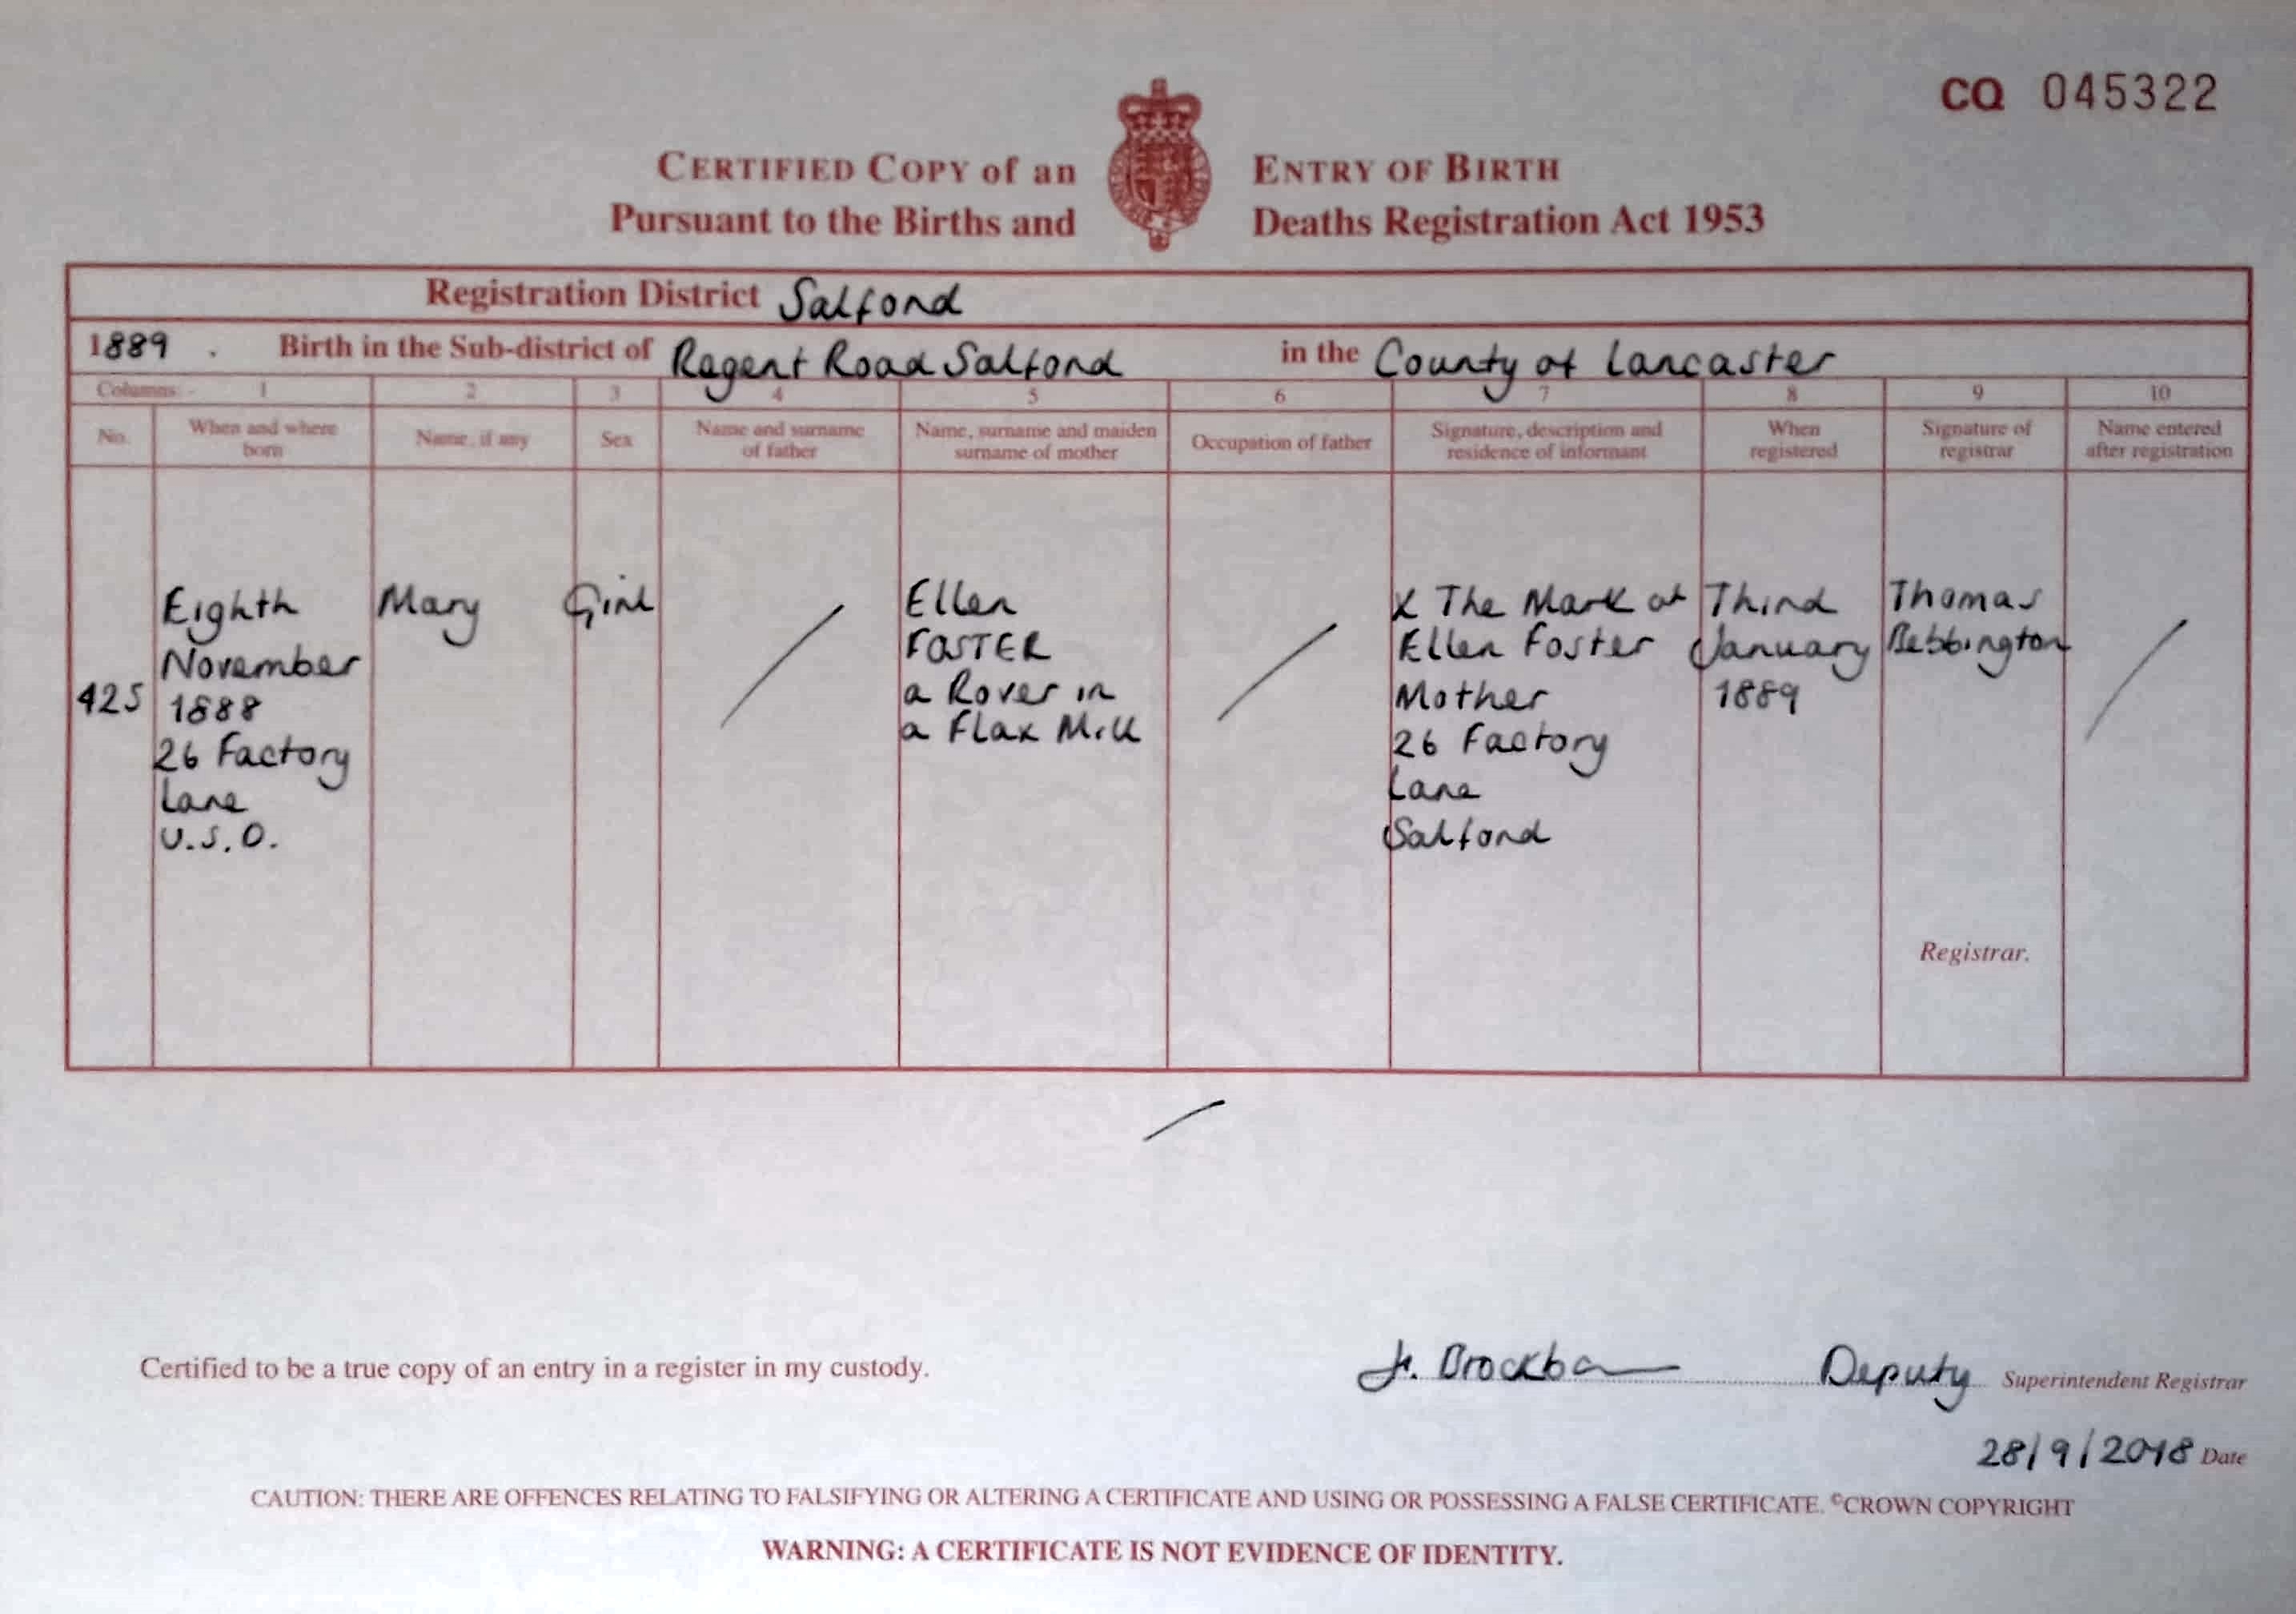 CQ 045322
CERTIFIED COPY of an ENTRY OF BIRTH
Pursuant to the Births and Deaths Registration Act 1953
Registration District Salford
1889 . Birth in the Sub-district of Regent Road Salford in the County of Lancaster
Columns:- 1 2 3 4 5 6 7 8 9 10
No.
When and where
born
Name, if any
Sex
Name and surname
of father
Name, surname and maiden
surname of mother
Occupation of father
Signature, description and
residence of informant
When
registered
Signature of
registrar
Name entered
after registration
425
Eighth
November
1888
26 Factory
Lane
U.S.D.
Mary
Girl
Ellen
FOSTER
a Rover in
a Flax Mill
X The Mark of
Ellen Foster
Mother
26 Factory
Lane
Salford
Third
January
1889
Thomas
Bebbington
Registrar.
Certified to be a true copy of an entry in a register in my custody.
Deputy Superintendent Registrar
28/9/2018 Date
CAUTION: THERE ARE OFFENCES RELATING TO FALSIFYING OR ALTERING A CERTIFICATE AND USING OR POSSESSING A FALSE CERTIFICATE. ©CROWN COPYRIGHT
WARNING: A CERTIFICATE IS NOT EVIDENCE OF IDENTITY.